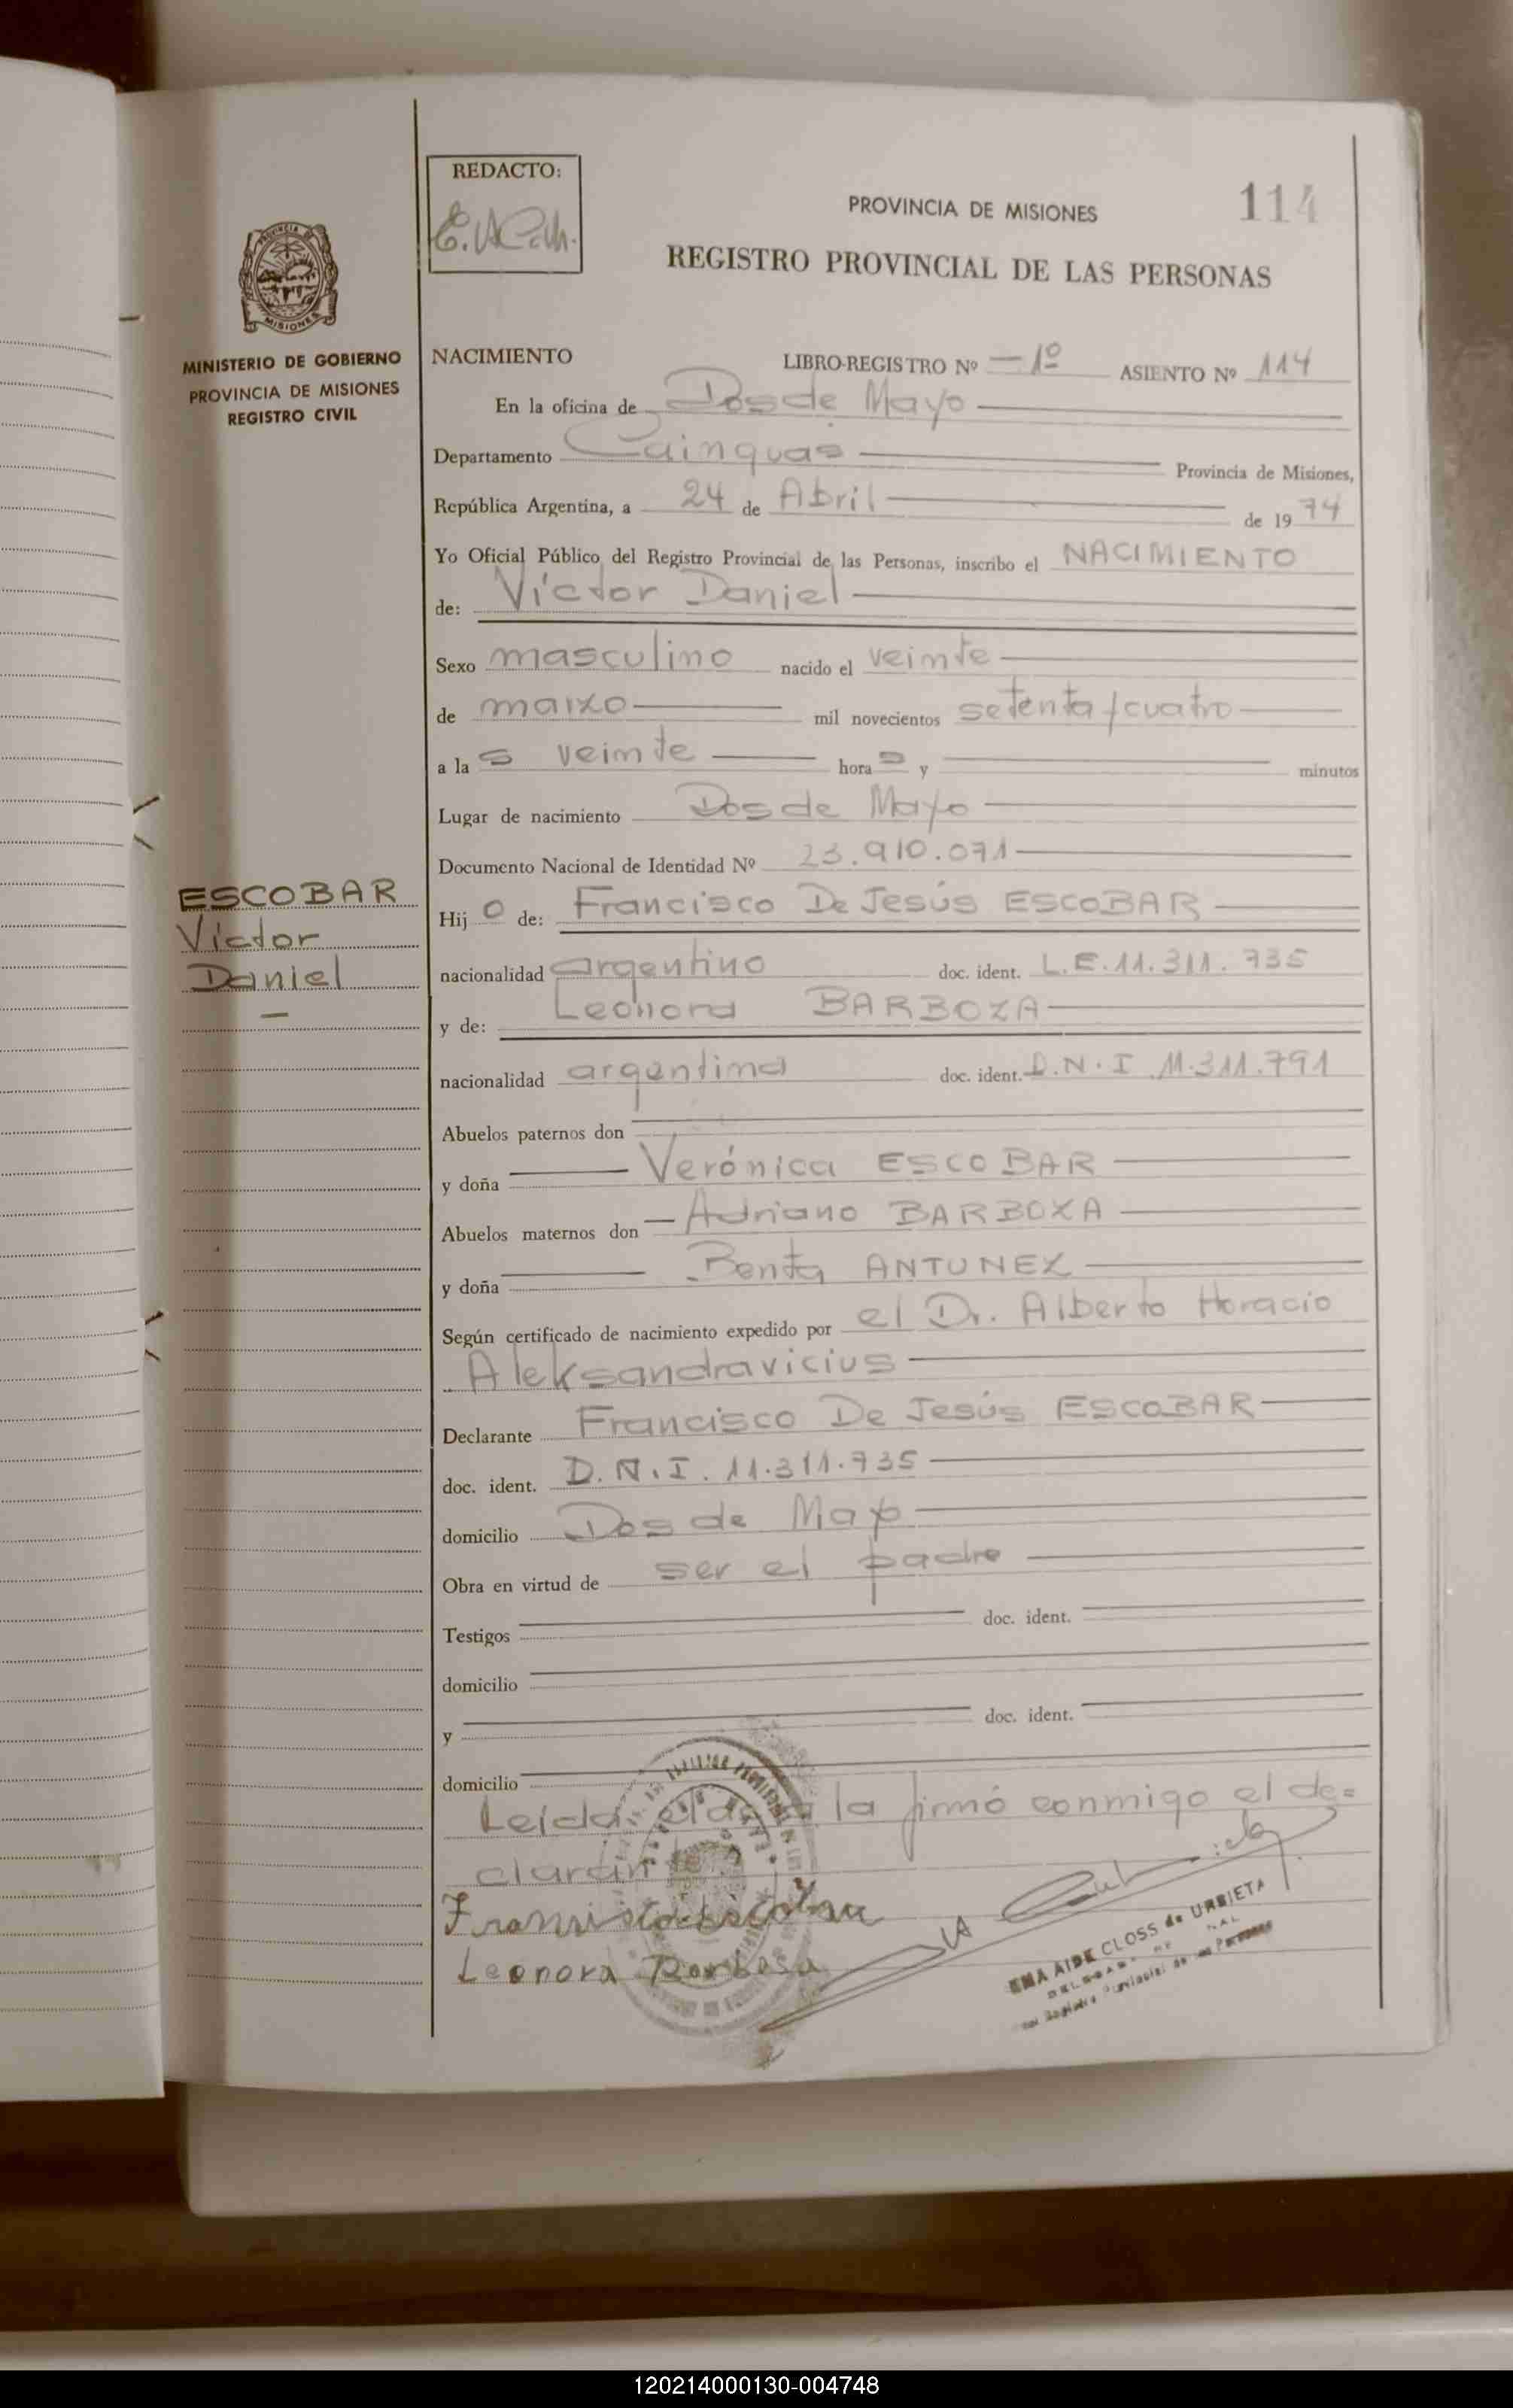 REDACTO:
PROVINCIA DE MISIONES
114
REGISTRO PROVINCIAL DE LAS PERSONAS
MISIONES
MINISTERIO DE GOBIERNO
PROVINCIA DE MISIONES
REGISTRO CIVIL
NACIMIENTO LIBRO-REGISTRO Nº 1º ASIENTO Nº 114
En la oficina de Dos de Mayo
Departamento Cainguas Provincia de Misiones,
República Argentina, a 24 de Abril de 1974
Yo Oficial Público del Registro Provincial de las Personas, inscribo el NACIMIENTO
de: Víctor Daniel
Sexo masculino nacido el veinte
de marzo mil novecientos setenta y cuatro
a las veinte horas y minutos
Lugar de nacimiento Dos de Mayo
Documento Nacional de Identidad Nº 23.910.071
ESCOBAR
Víctor
Daniel
Hijo de: Francisco De Jesús ESCOBAR
nacionalidad argentino doc. ident. L.E. 11.311.735
y de: Leonora BARBOZA
nacionalidad argentina doc. ident. D.N.I 11.311.791
Abuelos paternos don
y doña Verónica ESCOBAR
Abuelos maternos don Adriano BARBOZA
y doña Benta ANTUNEZ
Según certificado de nacimiento expedido por el Dr. Alberto Horacio
Aleksandravicius
Declarante Francisco De Jesús ESCOBAR
doc. ident. D.N.I. 11.311.735
domicilio Dos de Mayo
Obra en virtud de ser el padre
Testigos doc. ident.
domicilio
y doc. ident.
domicilio
Leída el acta la firmó conmigo el de=
clarante
Leonora Barbosa
EMA AIDE CLOSS de URRIETA
120214000130-004748